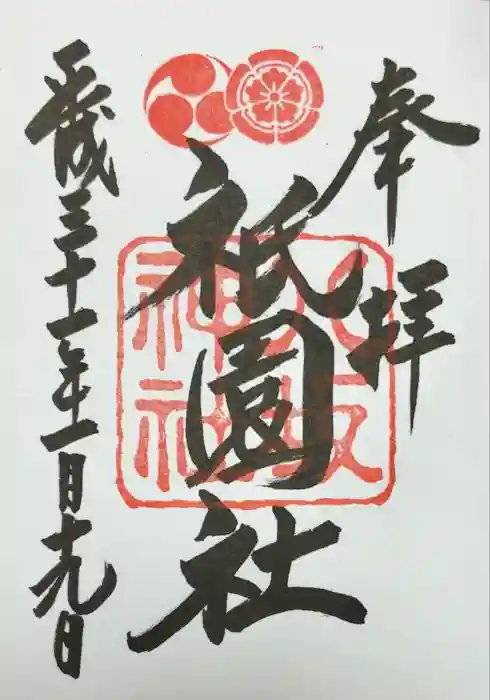 奉拝
祇園社
八坂
神社
平成三十一年一月十九日